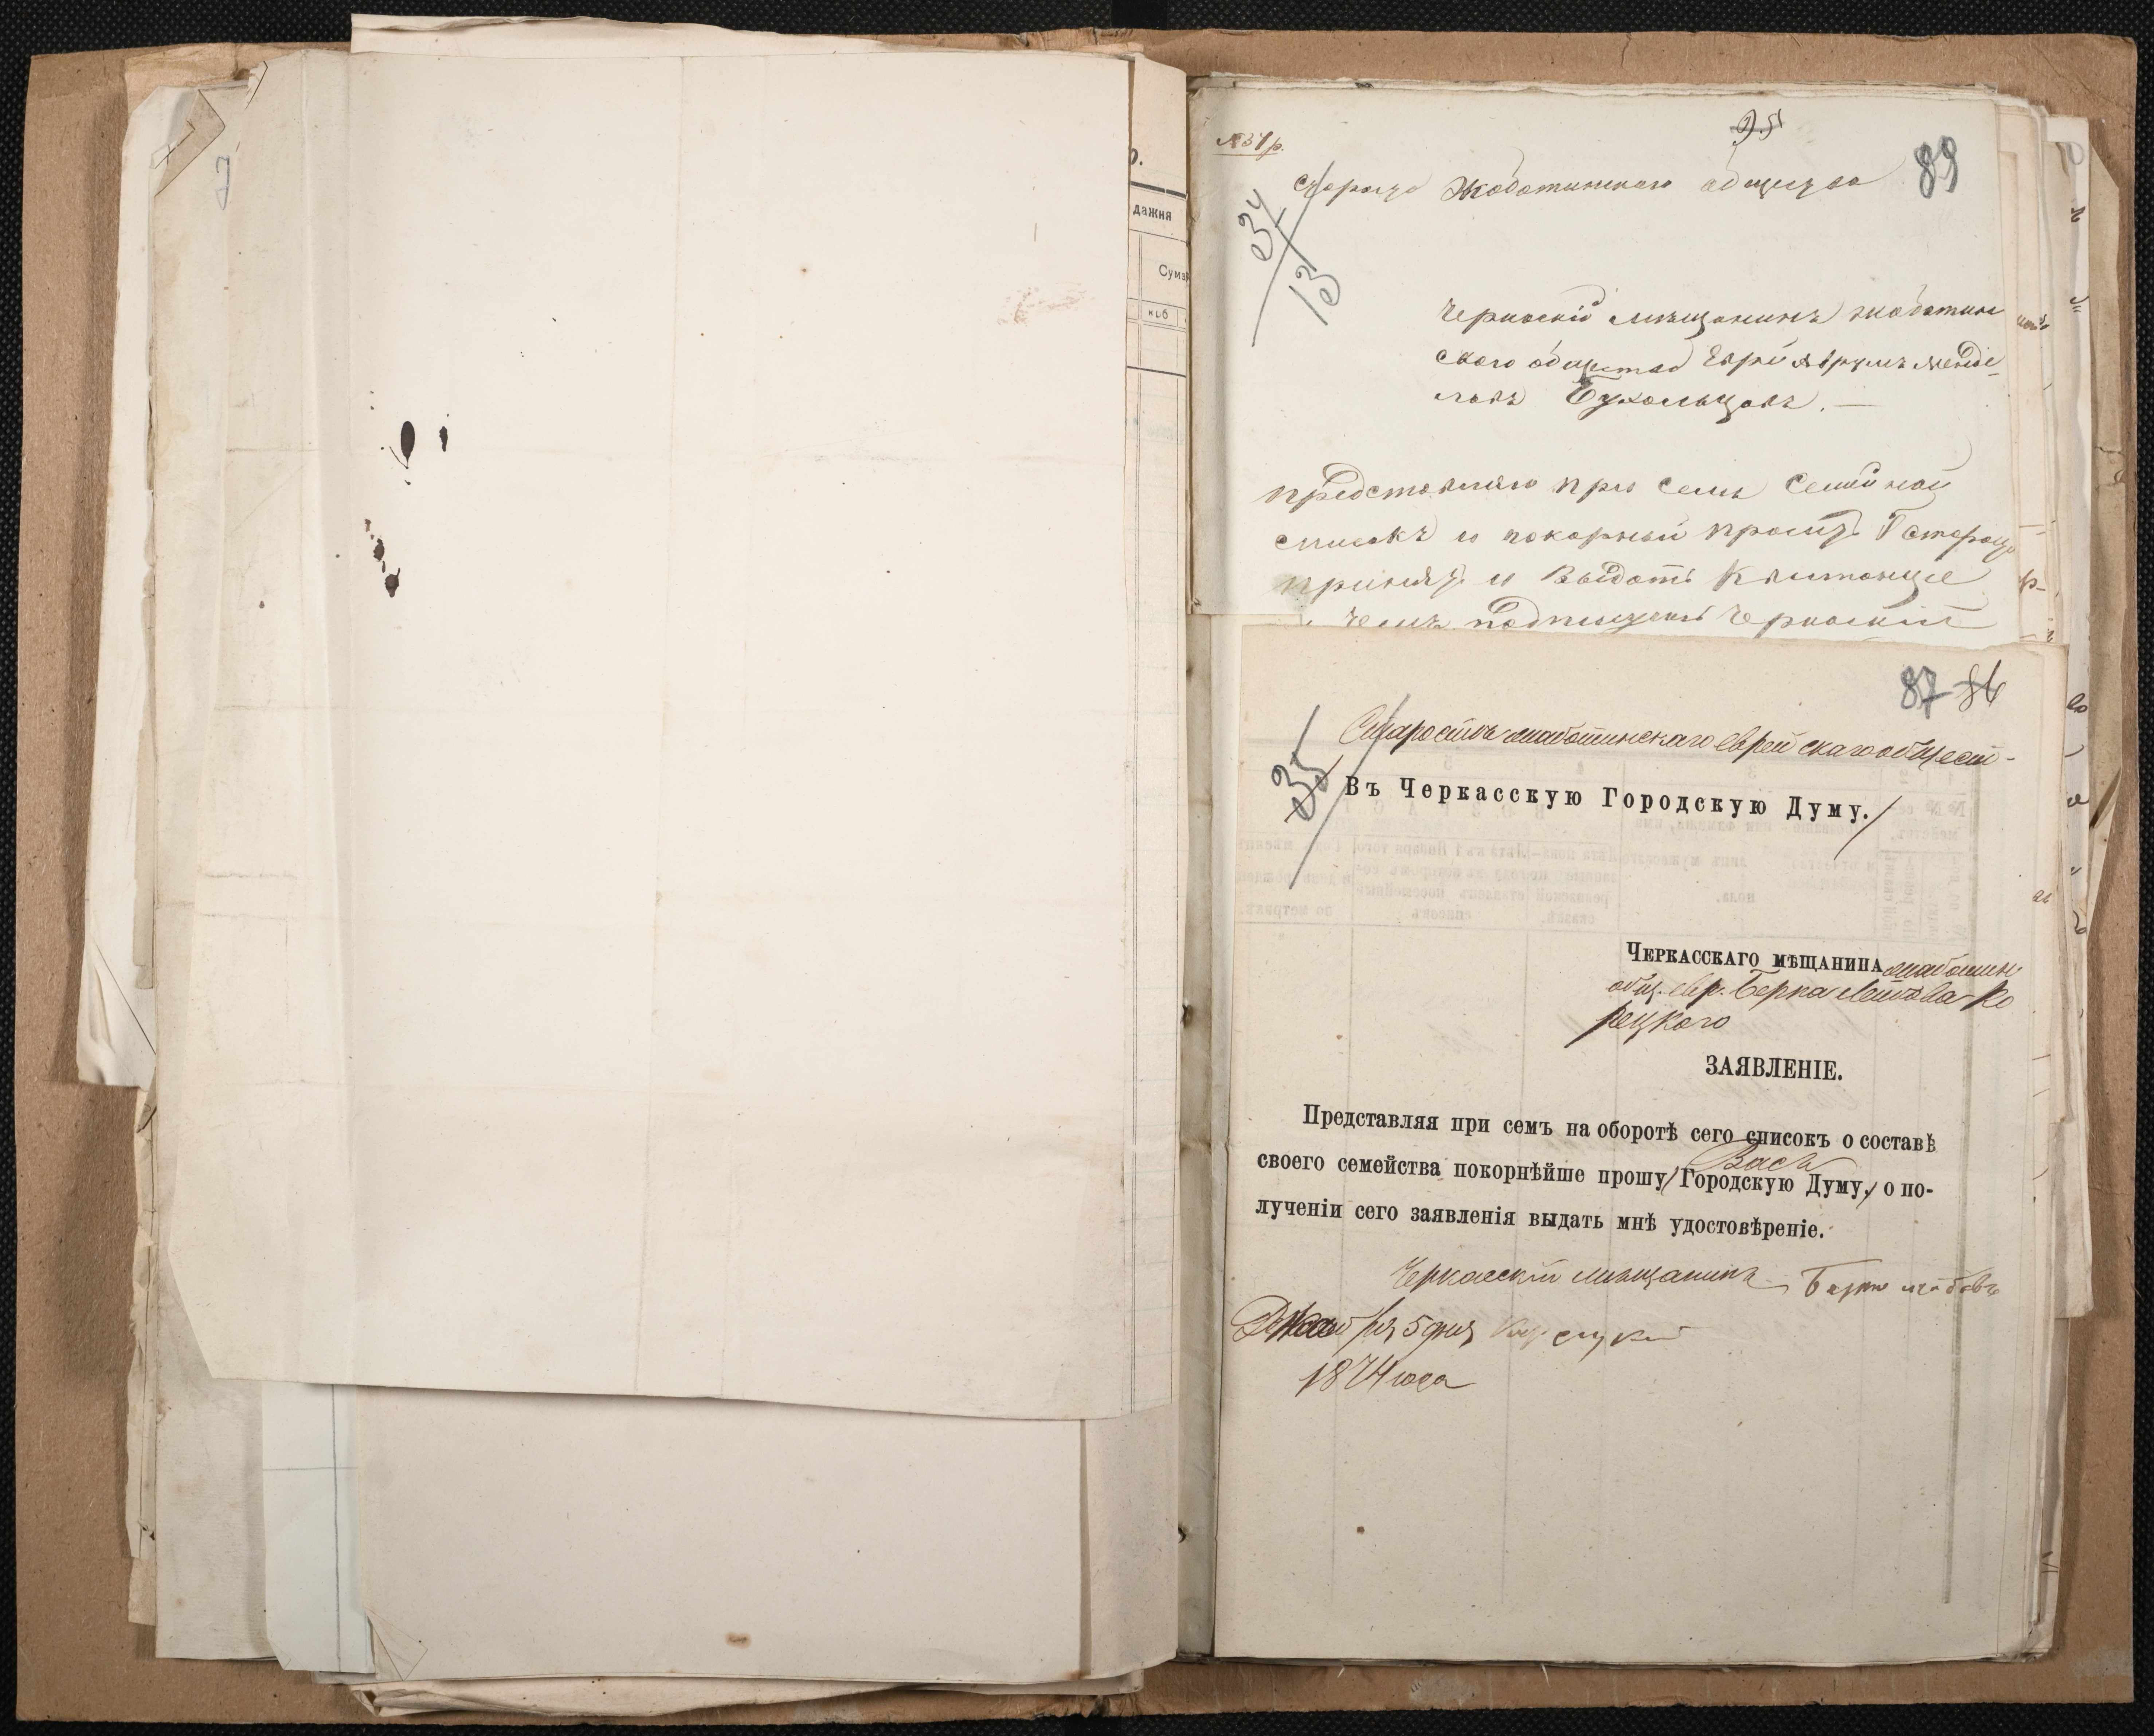 р.
дажня
Сума
коб
№ 31 р.
95
89
34
13
Старосте Жаботинскаго общества
Черкаскій мещанинъ жаботин
ского общества Еврей Аврумъ Менде-
левъ
представляю при семъ Семейной
списокъ и покорный просить Г Старост
принять и Выдать Квитанцие
чемъ подписуюсь Черкаскій
87 86
35
Старостѣ жаботинскаго еврейскаго общест-
Въ Черкасскую Городскую Думу.
Черкасскаго мѣщанина жаботин
общ. евр. Берка Лейбова Ко
рецкого
ЗАЯВЛЕНІЕ.
Представляя при семъ на оборотѣ сего списокъ о составѣ
Васъ
своего семейства покорнѣйше прошу Городскую Думу, о по-
лученіи сего заявленія выдать мнѣ удостовѣреніе.
Черкаскій мѣщанинъ Берко Лейбовъ
5 дня Корецкий
1874 года